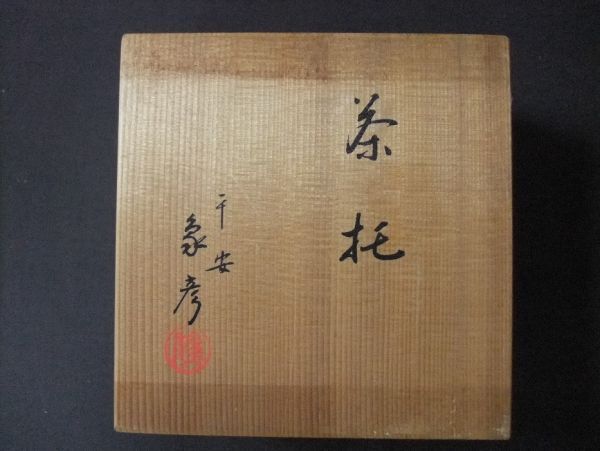 茶托
平安
象彦